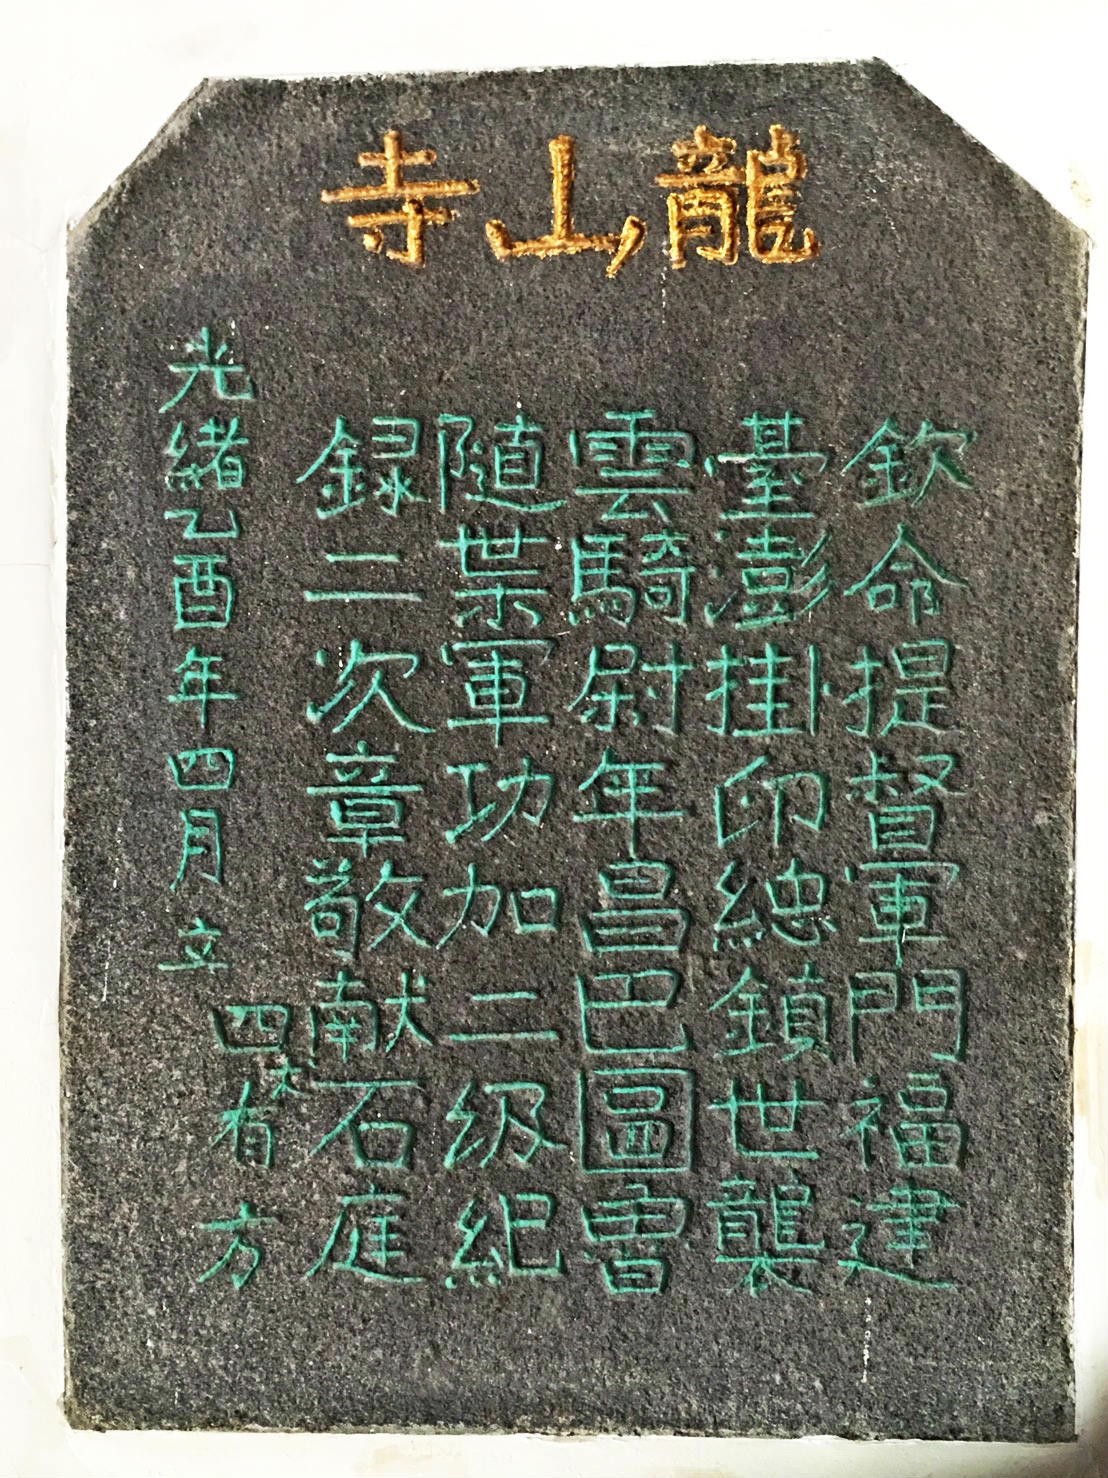 龍山寺
欽命提督軍門福建
臺澎挂印總鎮世襲
雲騎尉年昌巴圖魯
隨帶軍功加二級紀
録二次章敬献石庭
四有方
光緒乙酉年四月立